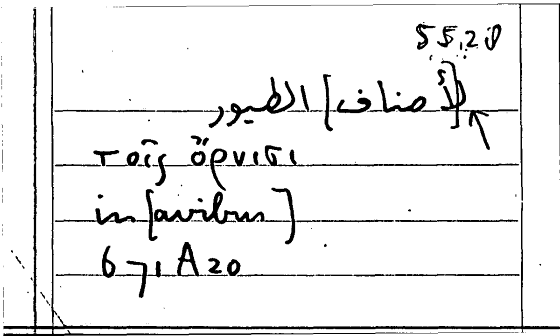 [لأصناف] الطيور
τοῖς ὄρνισι
in [avibus]
671 A20